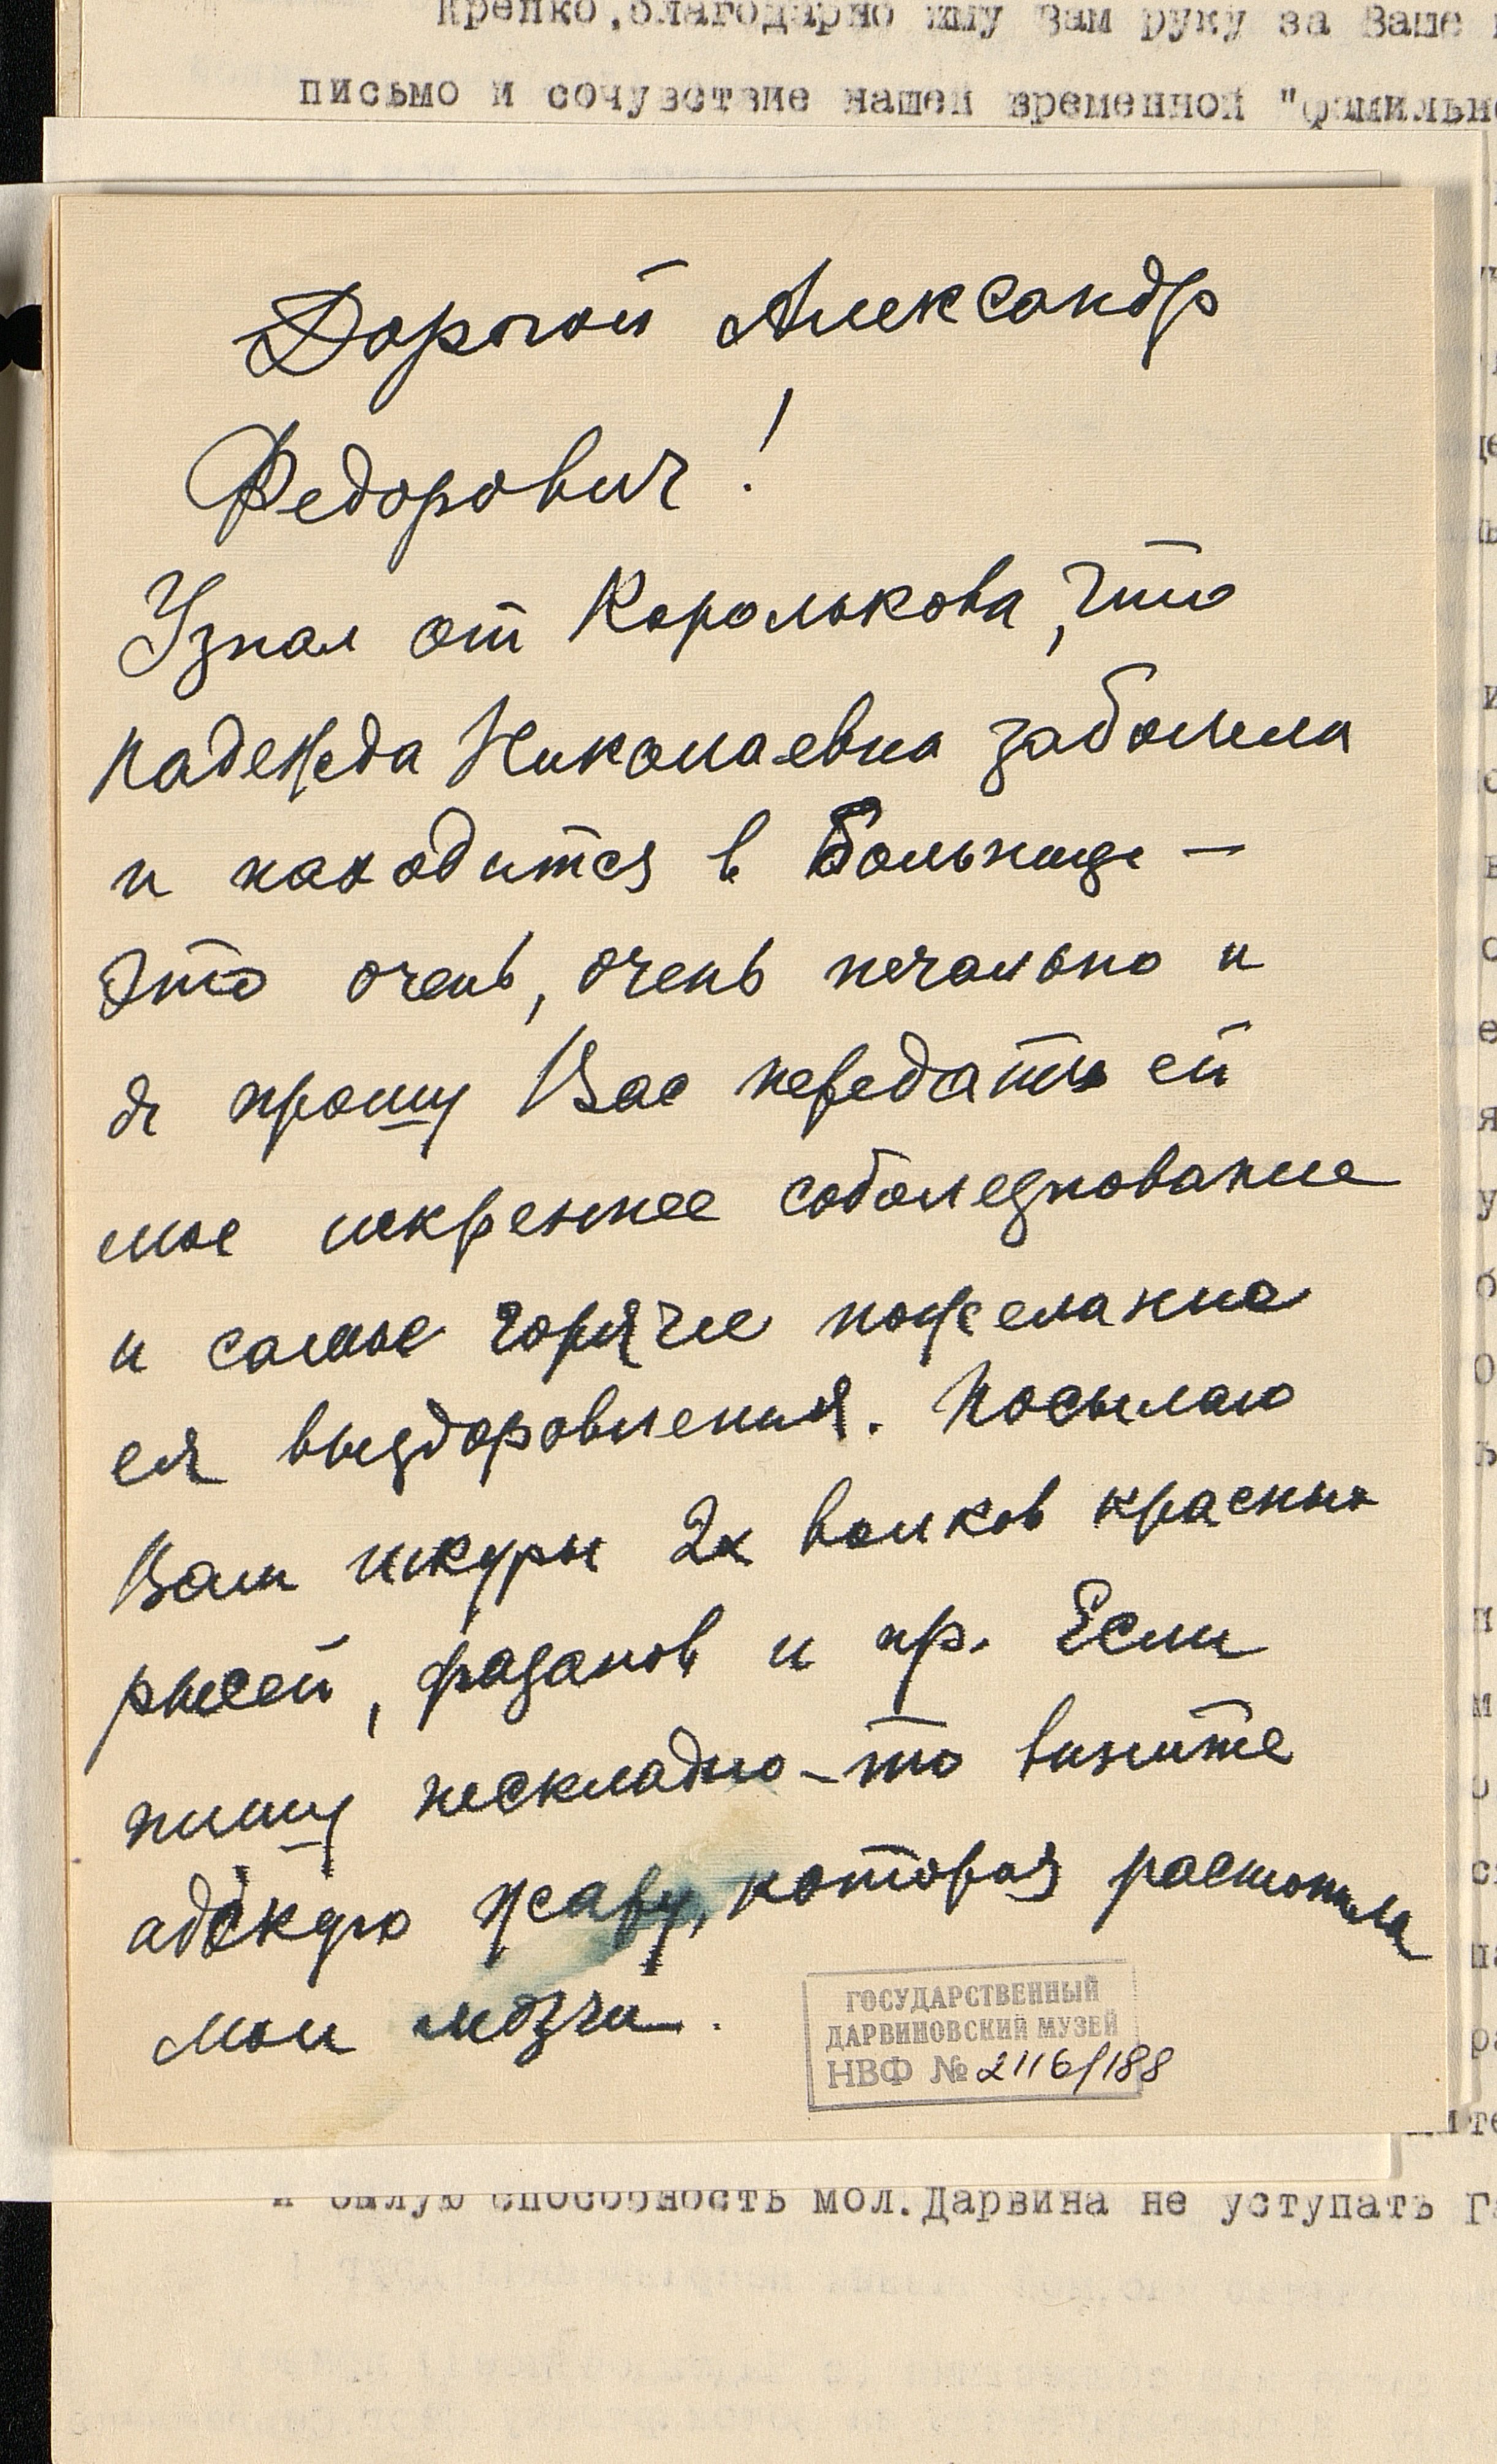 Крепко, благодарно жму Вам руку за Ваше
письмо и сочувствие нашей временной "фамильн
Дорогой Александр
Федорович!
Узнал от Королькова, что
Надежда Николаевна заболела
и находится в больнице —
Это очень, очень печально и
я прошу Вас передать ей
мое искреннее соболезнование
и самые горячие пожелание
ея выздоровления. Посылаю
Вам шкуры 2х волков красных
рысей, фазанов и пр. Если
пишу нескладно - то вините
адскую жару, которая растопила
мои мозги.
ГОСУДАРСТВЕННЫЙ
ДАРВИНОВСКИЙ МУЗЕЙ
НВФ № 2116/188
и былую способность мол. Дарвина не уступать